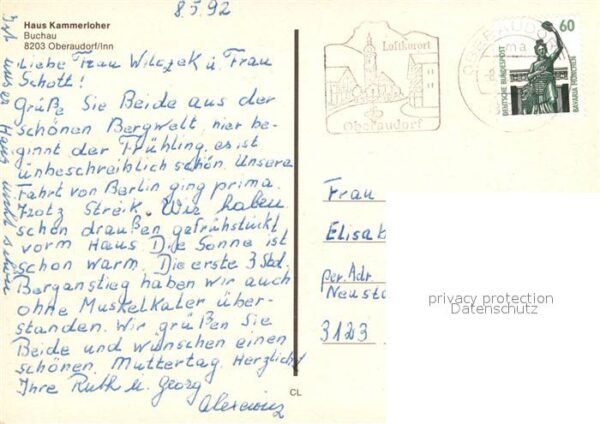 Haus Kammerloher
Buchau
8203 Oberaudorf/Inn
8.5.92
Liebe Frau Wilczek u. Frau
Schott!
Grüße Sie Beide aus der
schönen Bergwelt, hier be-
ginnt der Frühling, es ist
unbeschreiblich schön. Unsere
Fahrt von Berlin ging prima
Trotz Streik. Wir haben
schon draußen gefrühstückt
vorm Haus Die Sonne ist
schon warm. Die erste 3 Std.
Berganstieg haben wir auch
ohne Muskelkater über-
standen. Wir grüßen Sie
Beide und wünschen einen
schönen Muttertag. Herzlichst
Ihre Ruth u. Georg
Ist unser Haus nicht schön
CL
Luftkurort
Oberaudorf
OBERAUDORF
60
DEUTSCHE BUNDESPOST
BAVARIA MÜNCHEN
Frau
Elisa
per. Adr
Neusta
3123
privacy protection
Datenschutz